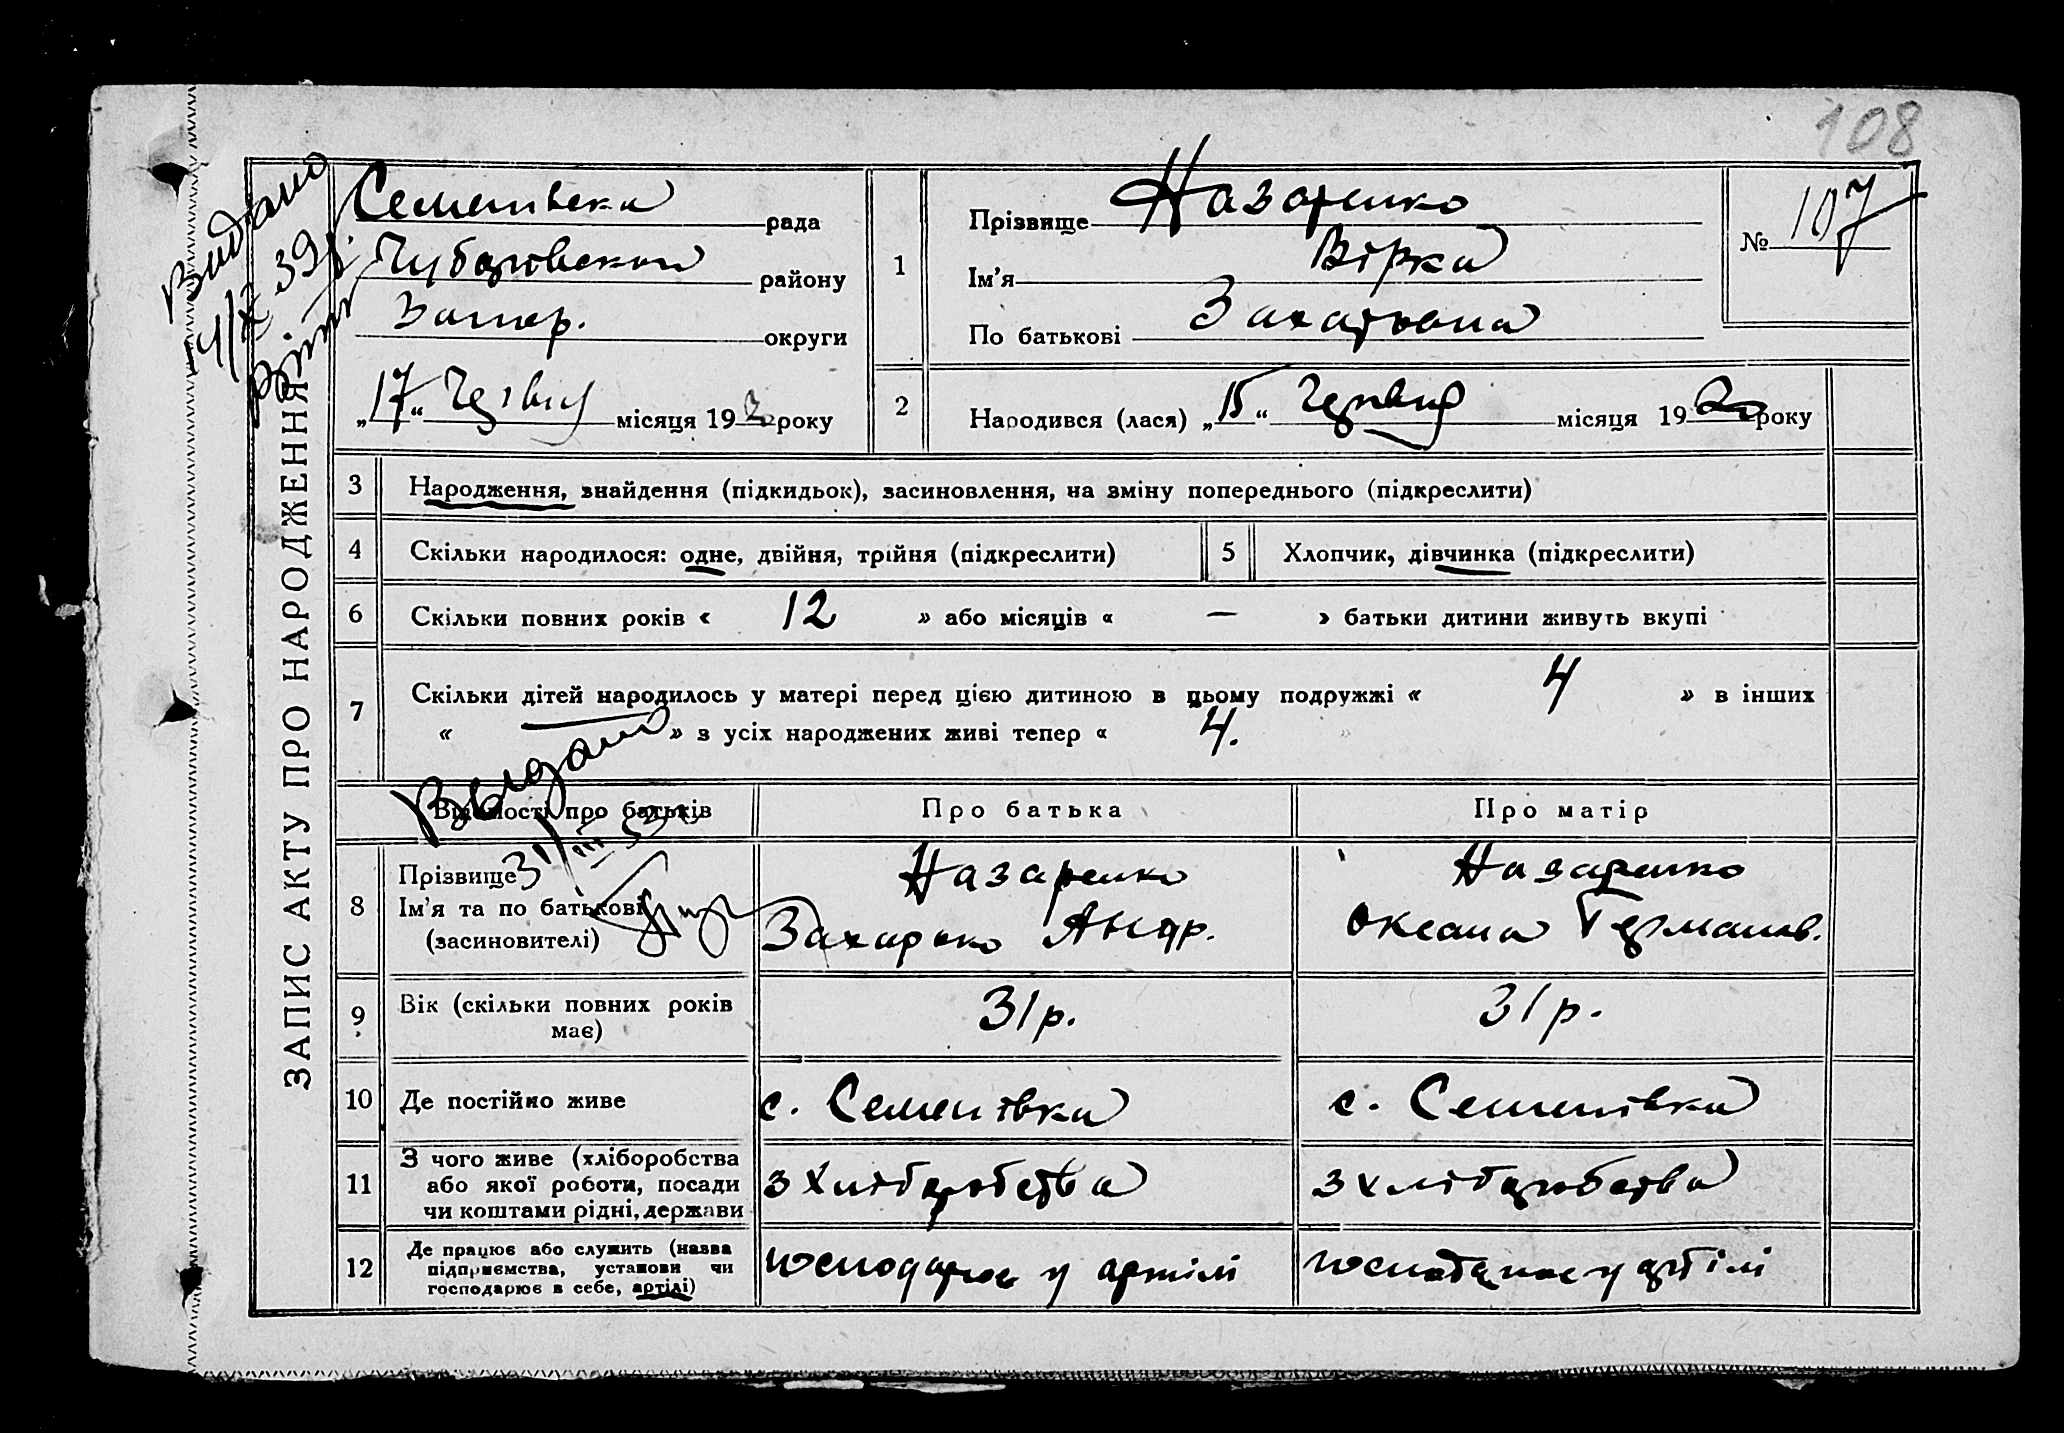 108
Видано
4/X 39 р.
ЗАПИС АКТУ ПРО НАРОДЖЕННЯ
Семенівська рада
Чубарівського району
Запор. округи
„17“ Червня місяця 193 року
1 Прізвище Назаренко
Ім'я Вірка
По батькові Захарівна
№ 107
2 Народився (лася) „15“ Червня місяця 19 року
3 Народження, знайдення (підкидьок), засиновлення, на зміну попереднього (підкреслити)
4 Скільки народилося: одне, двійня, трійня (підкреслити)
5 Хлопчик, дівчинка (підкреслити)
6 Скільки повних років « 12 » або місяців « — » батьки дитини живуть вкупі
7 Скільки дітей народилось у матері перед цією дитиною в цьому подружжі « 4 » в інших
« — » з усіх народжених живі тепер « 4.
Выдано
31/III 53
Відомості про батьків
Про батька
Про матір
8 Прізвище
Ім'я та по батькові
(засиновителі)
Назаренко
Захарько Андр.
Назаренко
Оксана Германов.
9 Вік (скільки повних років має)
31 р.
31 р.
10 Де постійно живе
с. Семенівка
с. Семенівка
11 З чого живе (хліборобства
або якої роботи, посади
чи коштами рідні, держави
з хліборобства
з хліборобства
12 Де працює або служить (назва
підприємства, установи чи
господарює в себе, артілі)
господарює у артілі
господарює у артілі